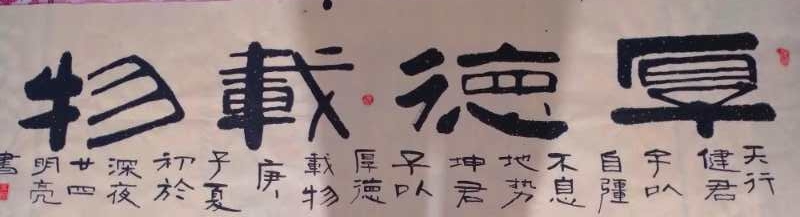 厚德載物
天行
健君
子以
自彊
不息
地势
坤君
子以
厚德
載物
庚
子夏
初於
深夜
廿四
明亮
書